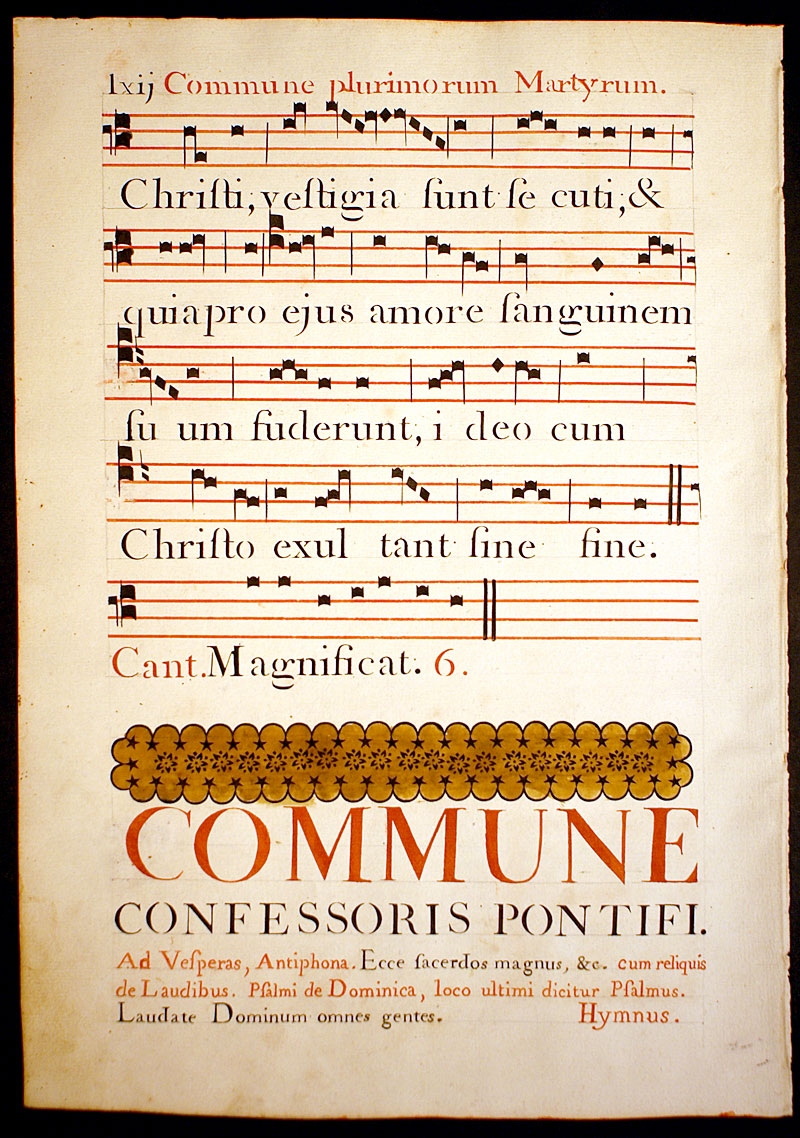 lxij Commune plurimorum Martyrum.
Chriſti, veſtigia ſunt ſe cuti, &
quia pro ejus amore ſanguinem
ſu um fuderunt, i deo cum
Chriſto exul tant ſine fine.
Cant. Magnificat. 6.
COMMUNE
CONFESSORIS PONTIFI.
Ad Veſperas, Antiphona. Ecce ſacerdos magnus, &c. cum reliquis
de Laudibus. Pſalmi de Dominica, loco ultimi dicitur Pſalmus.
Laudate Dominum omnes gentes. Hymnus.